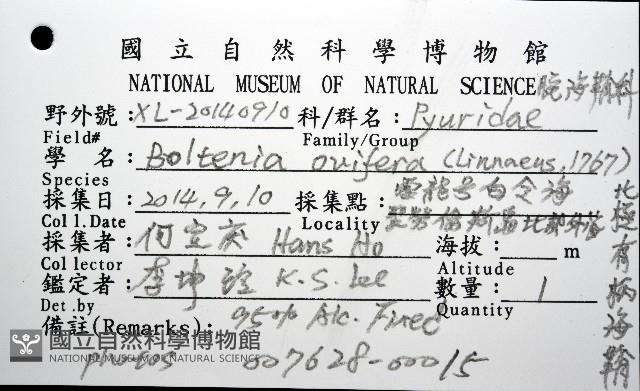 國立自然科學博物館
NATIONAL MUSEUM OF NATURAL SCIENCE 腕海鞘科
野外號: XL-20140910 科/群名: Pyuridae
Field# Family/Group
學 名: Boltenia ovifera (Linnaeus, 1767)
Species
採集日: 2014,9,10 採集點: 雪龍号白令海
Coll.Date Locality
採集者: 何宣慶 Hans Ho 海拔: m
Collector Altitude
鑑定者: 李坤瑄 K.S. Lee 數量: 1
Det.by Quantity
備註(Remarks): 95% Alc. Fixed
photos 007628-00015
北極有柄海鞘
國立自然科學博物館
NATIONAL MUSEUM OF NATURAL SCIENCE